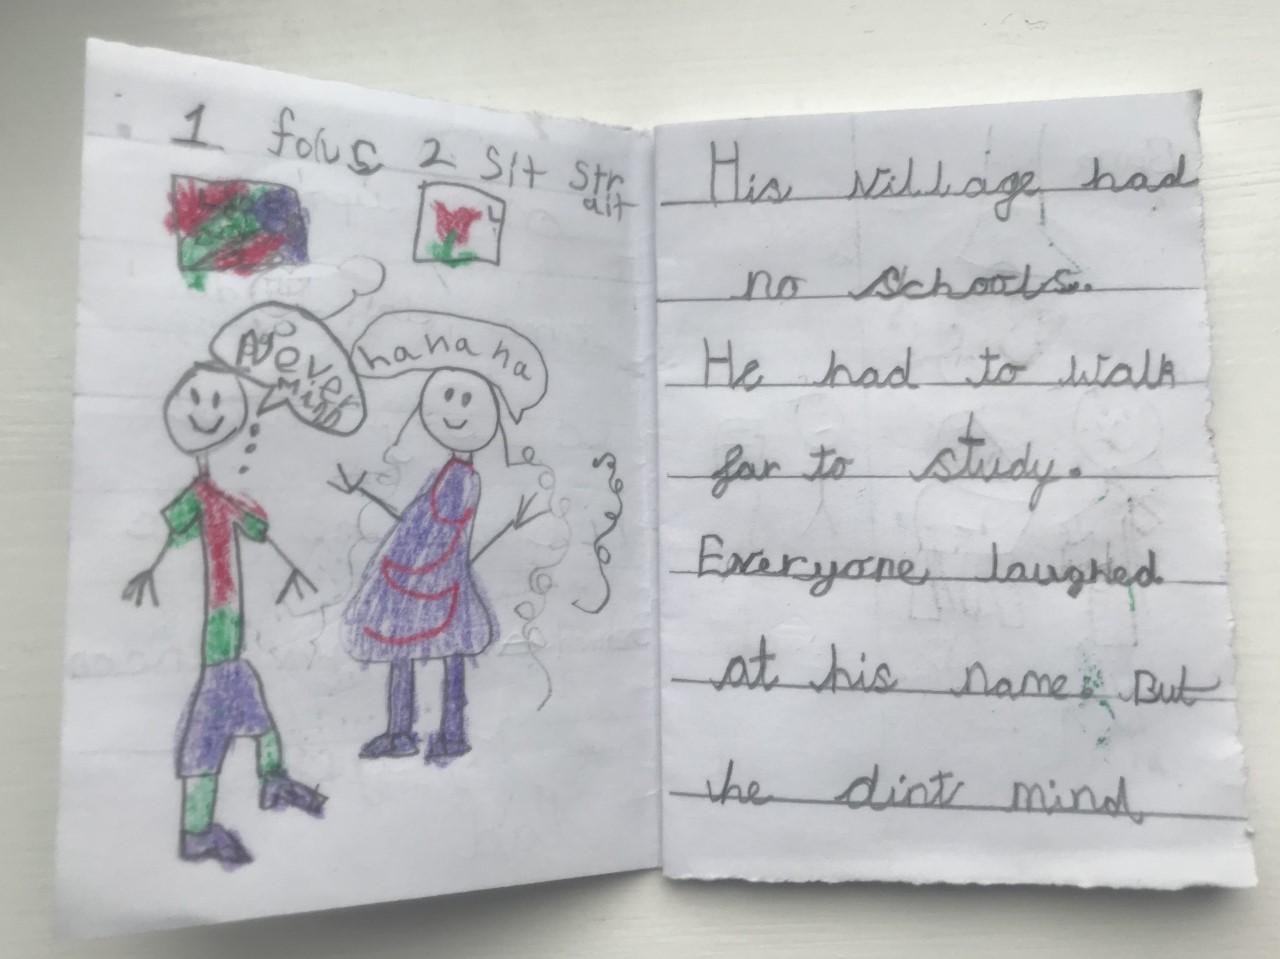 1 focus 2 sit str
ait
Never
Minb
hahaha
His village had
no schools.
He had to walk
far to study.
Everyone laughed
at his name. But
he dint mind